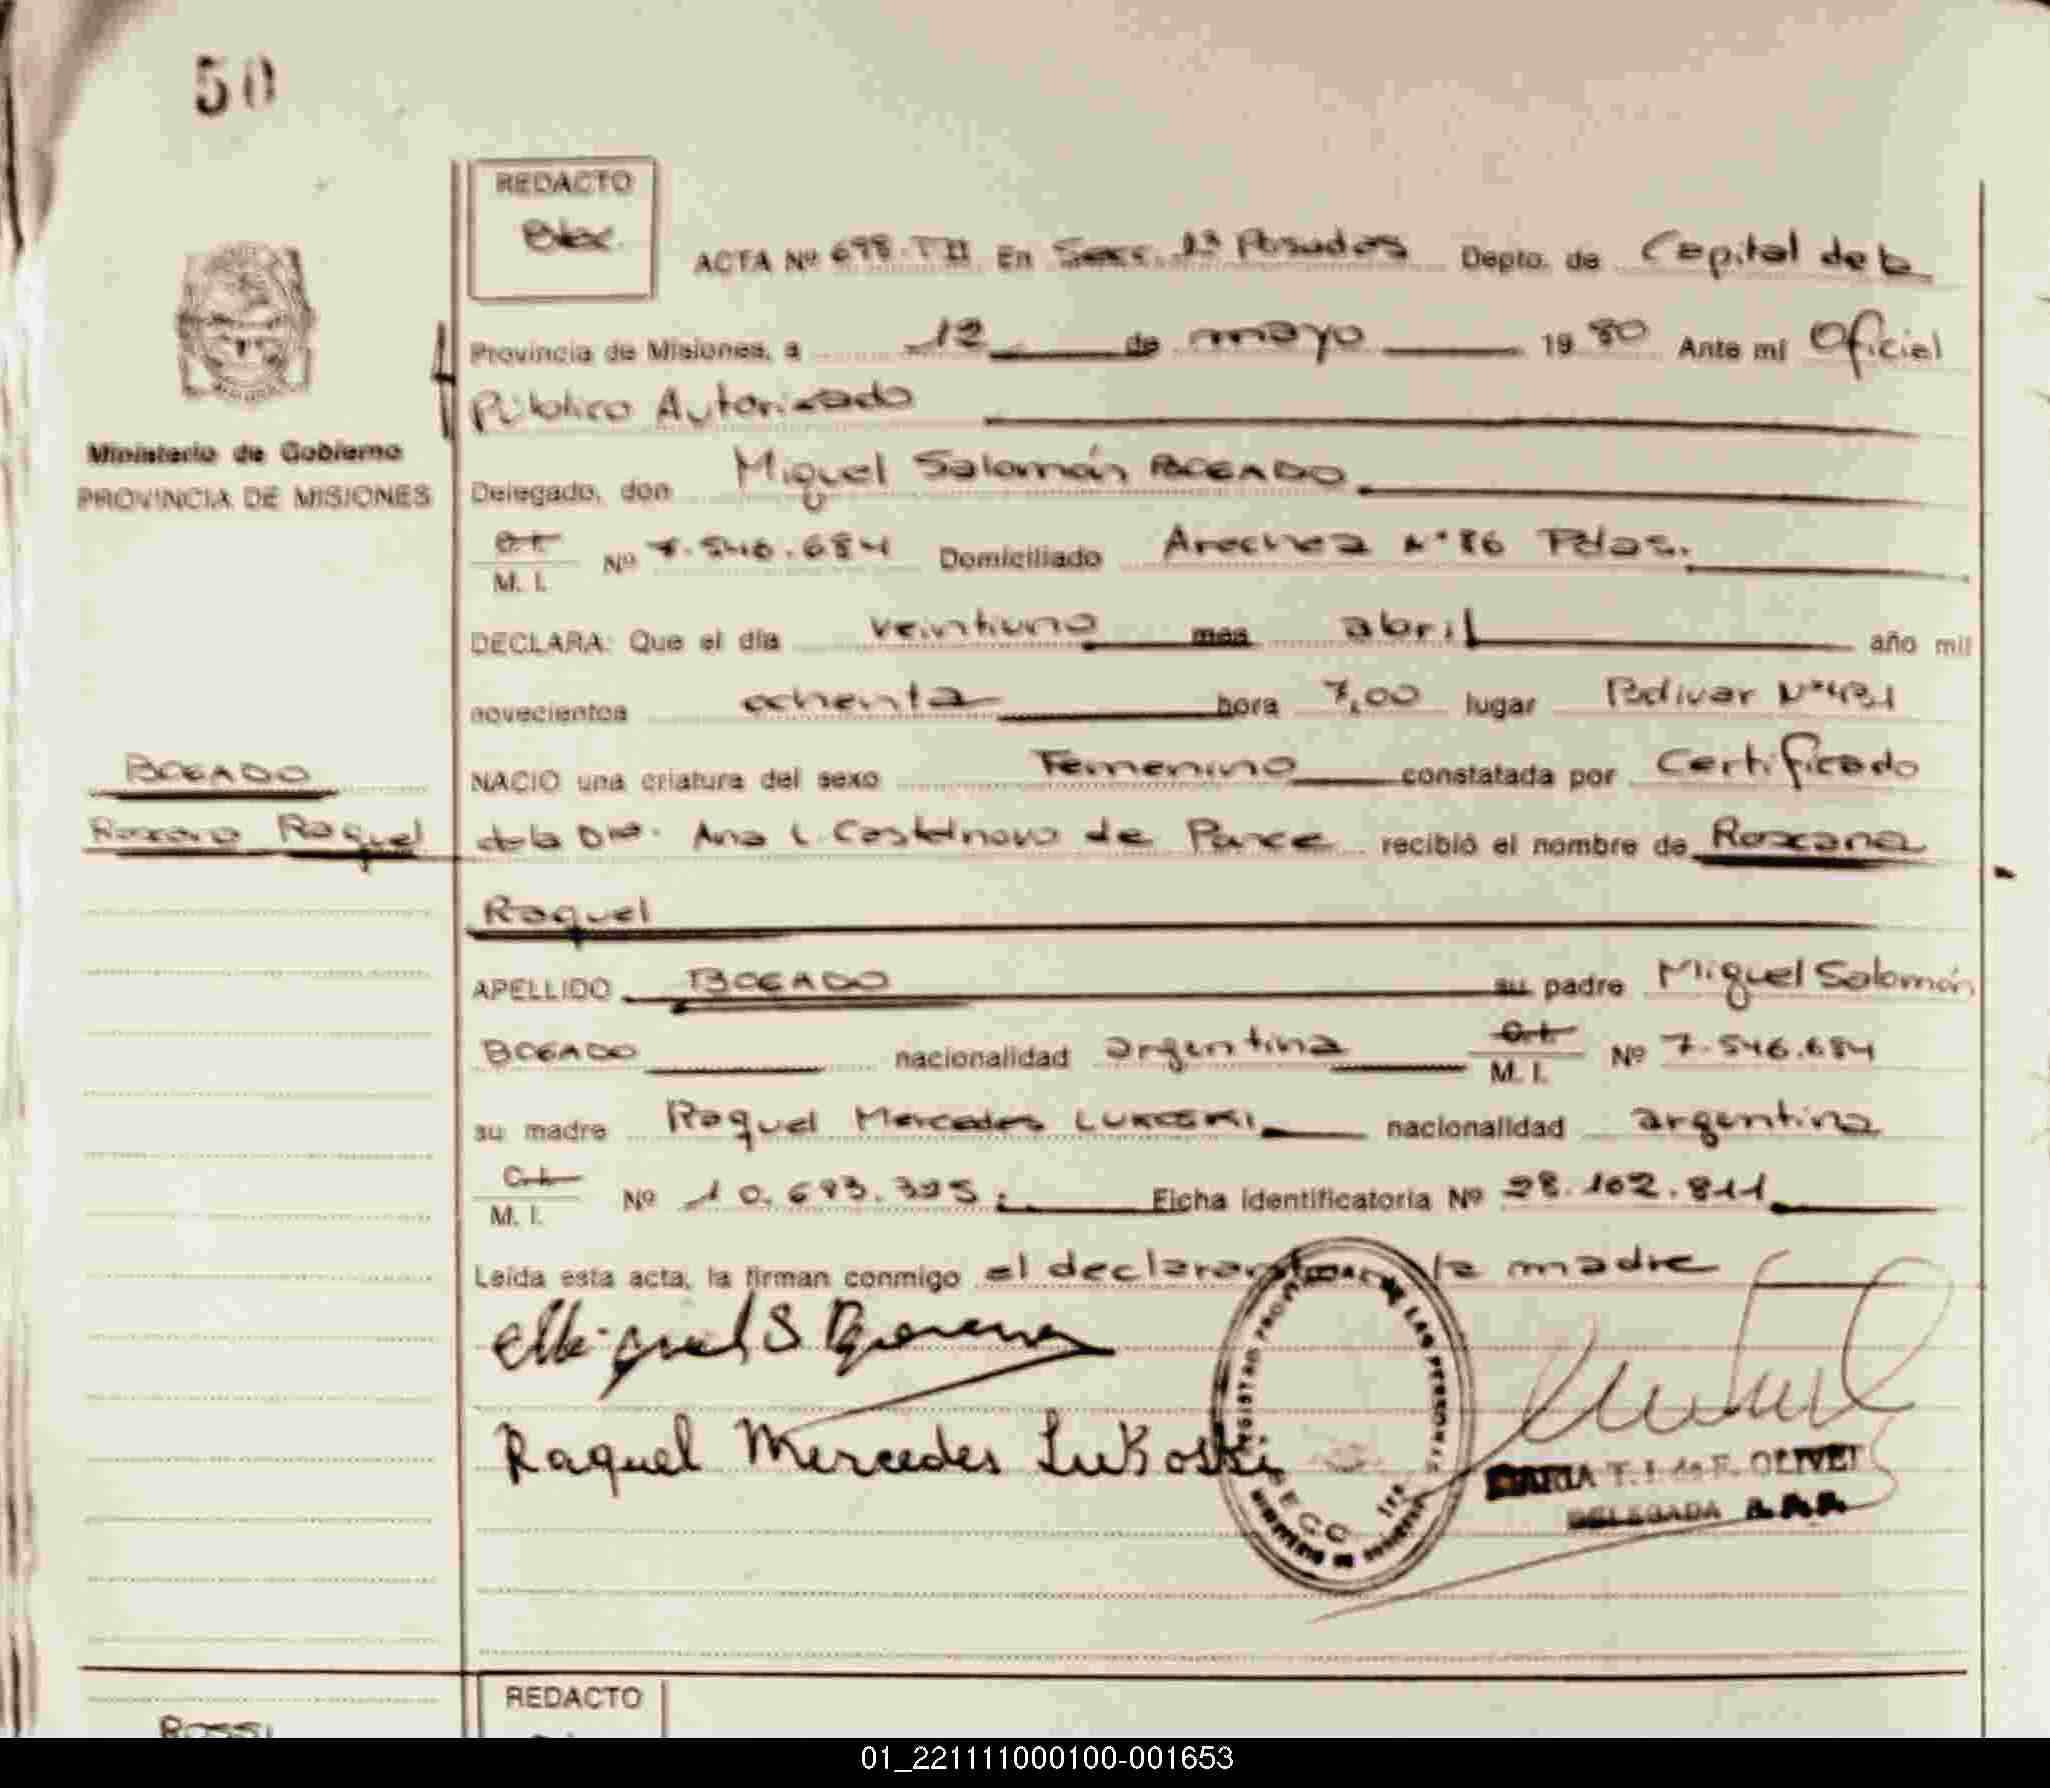 50
REDACTO
ACTA Nº 698-TII En Secc. 1ª Posadas Depto. de Capital de la
Provincia de Misiones, a 12 de mayo 1980 Ante mí Oficial
Público Autorizado
Ministerio de Gobierno
PROVINCIA DE MISIONES
Delegado, don Miguel Salomón BOGADO
C.I.
M. I. Nº 7.546.684 Domiciliado Arechea Nº 86 Pdas.
DECLARA: Que el día veintiuno mes abril año mil
novecientos ochenta hora 7,00 lugar Bolivar Nº
BOGADO
NACIO una criatura del sexo Femenino constatada por Certificado
Roxana Raquel
de la Dra. Ana L. Castelnovo de Ponce recibió el nombre de Roxana
Raquel
APELLIDO BOGADO su padre Miguel Salomón
BOGADO nacionalidad argentina C.I.
M. I. Nº 7.546.684
su madre Raquel Mercedes LUKOSKI nacionalidad argentina
C.I.
M. I. Nº 10.693.395; Ficha identificatoria Nº 28.102.811
Leída esta acta, la firman conmigo el declarante y la madre
Miguel S
Raquel Mercedes Lukoski
REGISTRO PROVINCIAL DE LAS PERSONAS
MINISTERIO DE GOBIERNO
MARIA T. I. de F. OLIVET
DELEGADA
REDACTO
ROSSI
01_221111000100-001653